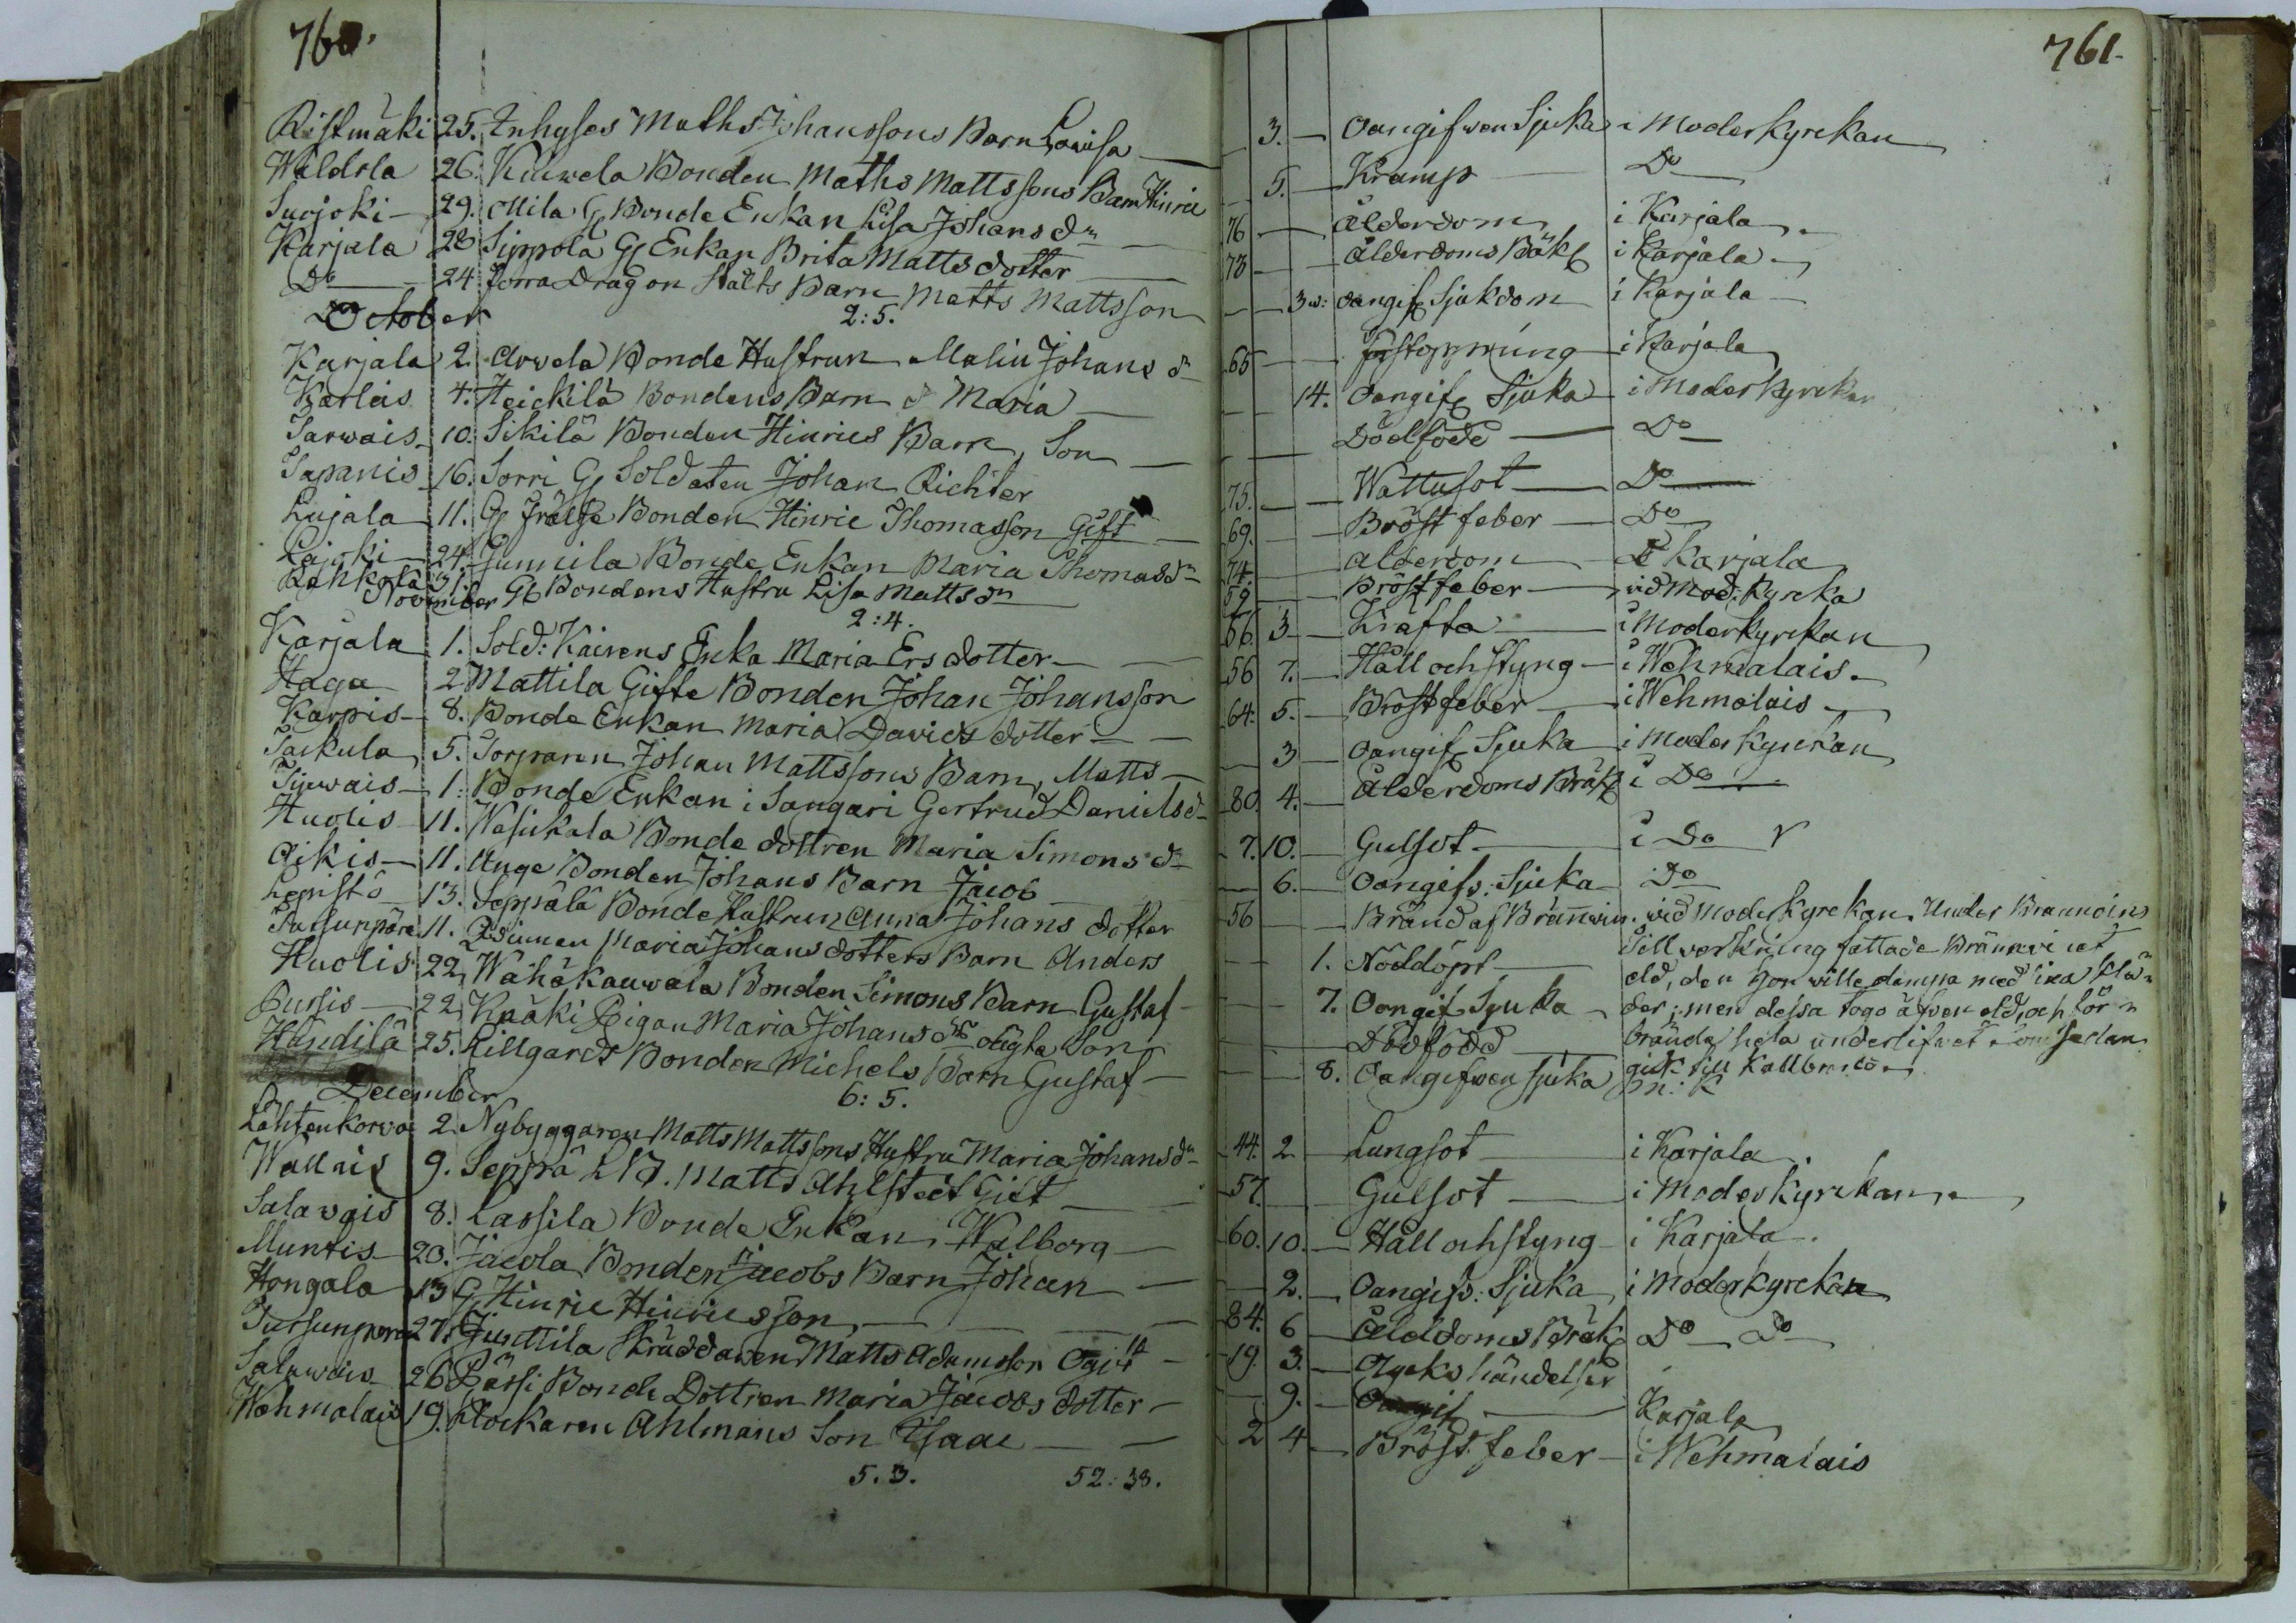 760.
Ristmäki 25. Inhyses Maths Johanssons Barn Lovisa
26. Kauwela Bonden Maths Mattssons Barn Hinric
Suojoki 29. Ollila Gl Bonde Enkan Lisa Johans dr
Karjala 28 Sippola Gl Enkan Brita Matts dotter
Do 24 Dragon Stålts Barn Matts Mattsson
October 2:5.
Karjala 2. Arwela Bonde Hustrun Malin Johans dr
4. Heickilä Bondens Barn Maria
Sarwais 10. Sikilä Bonden Hinrics Barn, Son
Sapanis 16. Sorri Gl Soldaten Johan Richter
Lujala 11. Gl Frälse Bonden Hinric Thomasson Gift
Lajoki 24. Junnila Bonde Enkan Maria Thomas dr
31. Gl Bondens Hustru Lisa Matts dr
November 2:4.
Karjala 1. Sold: Kairens Enka Maria Ers dotter
Haga 2 Mattila Gifte Bonden Johan Johansson
Karpis 8. Bonde Enkan Maria Davids dotter
5. Torparen Johan Mattssons Barn, Matts
1. Bonde Enkan i Sangari Gertrud Daniels d
Huolis 11. Bonde dottren Maria Simons dr
11. Unge Bonden Johans Barn Jacob
Lepistö 13. Seppälä Bonde Hustrun Anna Johans dotter
11. Maria Johans dotters Barn Anders
Huolis 22 Wähäkauwala Bonden Simons Barn Gustaf
22 Knäki Pigan Maria Johans drs oägta Son
25. Lillgards Bonden Michels Barn Gustaf
December 6:5.
Lähtenkorva 2. Nybyggaren Matts Mattssons Hustru Maria Johans dr
Wallais 9. Seppä Matts Ahlstedt Gift
Salavais 8. Lassila Bonde Enkan Walborg
Muntis 20. Jacola Bonden Jacobs Barn Johan
Hongala 13 Gl Hinric Hinricsson
27. Junttila Skräddaren Matts Adamsson Ogift
Saluwais 26 Pässi Bonde Dottren Maria Jacobs dotter
Wehmalais 19. Klockaren Ahlmans Son Isaac
5.3. 52:38.
761.
3. Oangifwen Sjuka i Moderkyrckan
5. Kramp Do
76 Ålderdom i Karjala
78 Ålderdoms Bräkl i Karjala
3 w: Oangifl Sjukdom i Karjala
65 förstoppning i Karjala
14. Oangifl Sjuka i Moderkyrckan
Dödfödd Do
75. Wattusot Do
69. Bröst feber Do
74. Alderdom i Karjala
59 Bröstfeber wid Mod: Kyrcka
66. 3 Kräfta i Moderkyrckan
56 7. Håll och styng i Wehmalais
64. 5. Bröstfeber i Wehmalais
3 Oangifl Sjuka i Moderkyrckan
80. 4. Ålderdoms Bräkl i Do
7. 10. Gulsot i Do
6. Oangifs: Sjuka Do
56 Bränd af Brännwin. wid Moderkyrckan. Under Brännvins
Tillverkning fattade Brännvinet
1. Nöddöpt
eld, den hon wille dämpa med sina klä-
7. Oangif Sjuka
der; men dessa togo äfven eld, och för-
Dödfödd
brända hela underlifvet som sedan
8. Oangifven sjuka
gick till Kallbrand.
44. 2 Lungsot i Karjala.
57. Gulsot i Moderkyrckan
60. 10. Håll och styng i Karjala.
2. Oangifs: Sjuka i Moderkyrckan
84. 6 Ålddoms Bräkl Do Do
19. 3. Olycks händelser
9. Oangifl Karjala
2 4 Bröst feber i Wehmalais